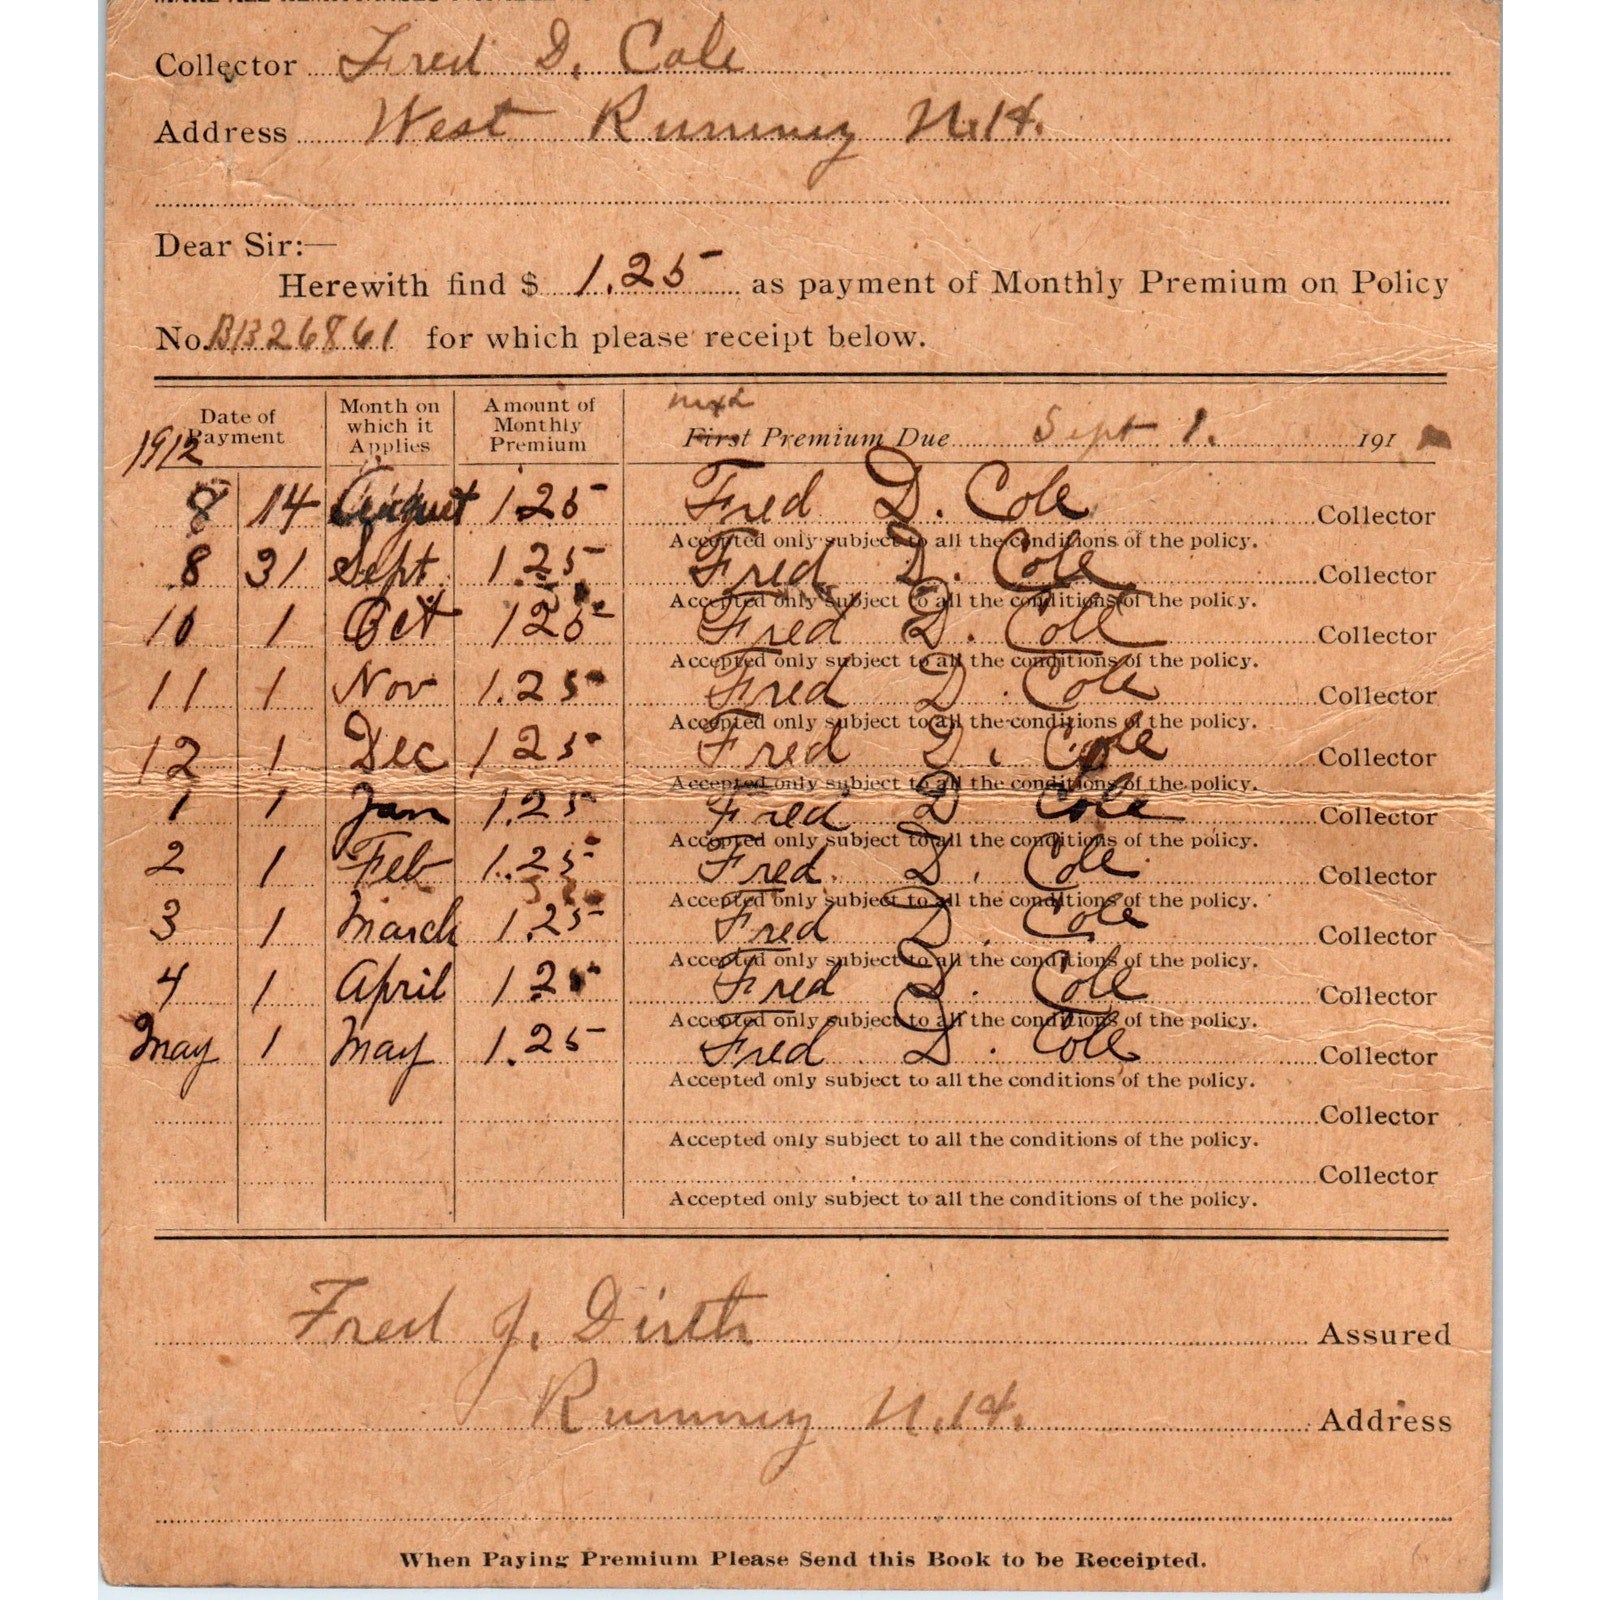 Collector Fred D. Cole
Address West Rumney N.H.
Dear Sir:—
Herewith find $ 1.25 as payment of Monthly Premium on Policy
No. B1326861 for which please receipt below.
Date of Payment Month on which it Applies Amount of Monthly Premium
1912 First Premium Due Sept 1. 191
8 14 August 1.25 Fred D. Cole Collector
Accepted only subject to all the conditions of the policy.
8 31 Sept. 1.25 Fred D. Cole Collector
Accepted only subject to all the conditions of the policy.
10 1 Oct 1 25 Fred D. Cole Collector
Accepted only subject to all the conditions of the policy.
11 1 Nov 1.25 Fred D. Cole Collector
Accepted only subject to all the conditions of the policy.
12 1 Dec 1 25 Fred D. Cole Collector
Accepted only subject to all the conditions of the policy.
1 1 Jan 1.25 Fred D Cole Collector
Accepted only subject to all the conditions of the policy.
2 1 Feb 1.25 Fred. D. Cole Collector
Accepted only subject to all the conditions of the policy.
3 1 March 1.25 Fred D. Cole Collector
Accepted only subject to all the conditions of the policy.
4 1 April 1.25 Fred D. Cole Collector
Accepted only subject to all the conditions of the policy.
May 1 May 1.25 Fred D. Cole Collector
Accepted only subject to all the conditions of the policy.
Collector
Accepted only subject to all the conditions of the policy.
Collector
Accepted only subject to all the conditions of the policy.
Fred J. Dirth Assured
Rumney N.H. Address
When Paying Premium Please Send this Book to be Receipted.